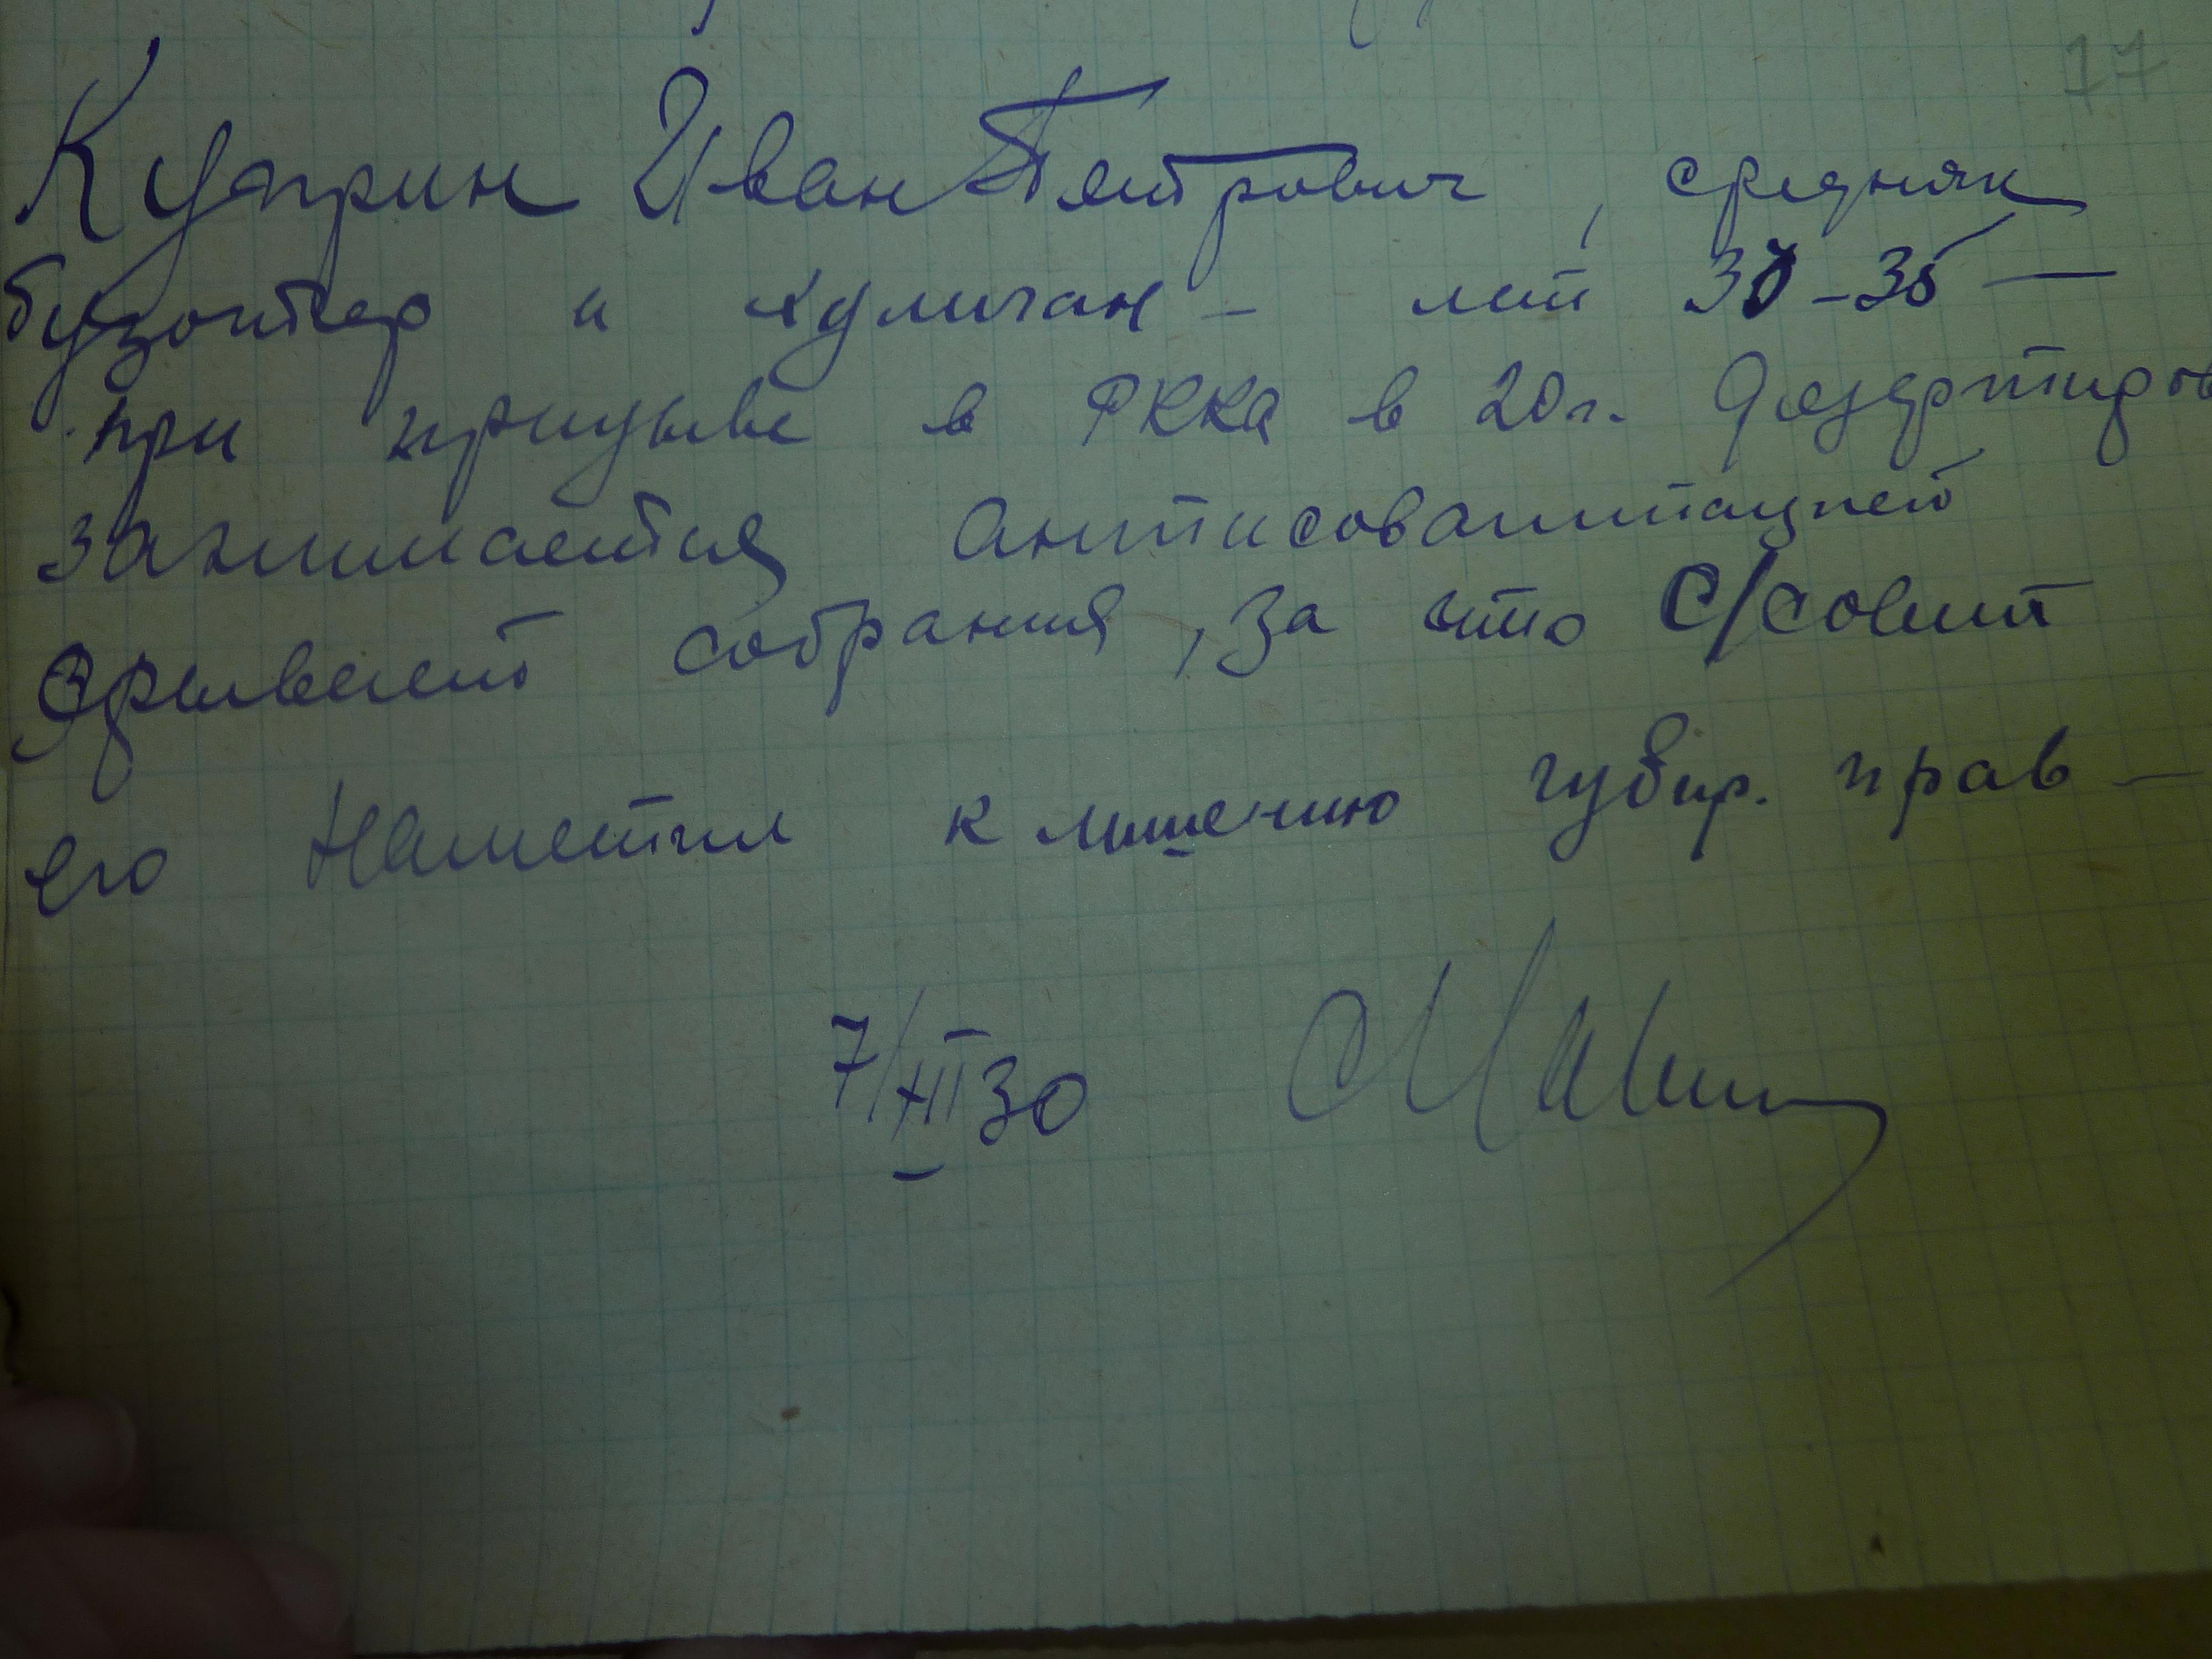 17
Куприн Иван Петрович, средняк
бузотер и хулиган - лет 30-35 —
при призыве в РККА в 20 г. дезертиров
занимается антисовагитацией
Срывает собрания, за что С/совет
его наметил к лишению губир. прав —
7/XII 30